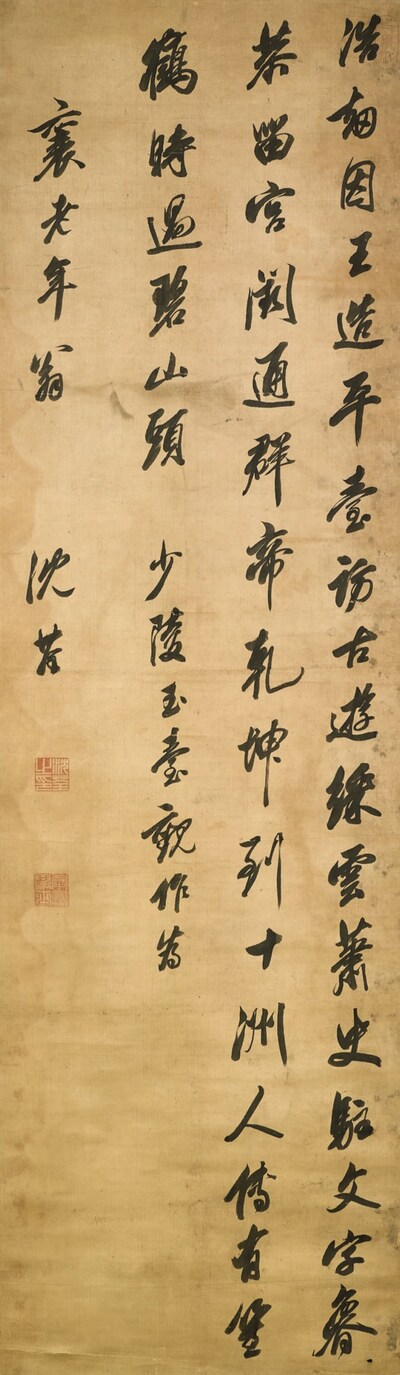 浩劫因王造平臺訪古遊綵雲蕭史駐文字魯
恭留宮闕通群帝乾坤到十洲人傳有笙
鶴時過碧山頭 少陵玉臺觀作為
襄老年翁 沈荃
沈荃之印